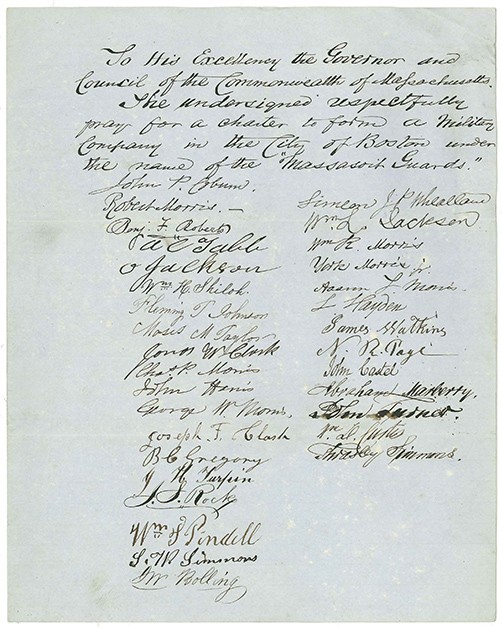 To His Excellency the Governor and
Council of the Commonwealth of Massachusetts.
The undersigned respectfully
pray for a charter to form a Military
Company in the City of Boston under
the name of the "Massasoit Guards."
John P. Coburn.
Robert Morris. —
Benj. F. Roberts
Jackson
Wm. H.
Flemmg T Johnson
Moses M Taylor
Jonas W. Clark
Chas. R Morris
John Henis
George W Morris.
Joseph F. Clash
B C Gregory
H Turpin
J. S. Rock
Wm S Pindell
S. W. Simmons
Bolling
Simeon J. P.
Wm. L. Jackson
Wm H. Morris
York Morris, jr.
L Morris
L Hayden
James Watkins
N R. Page
John
Abraham Marberry.
John Turner.
Wm.
Simmons.